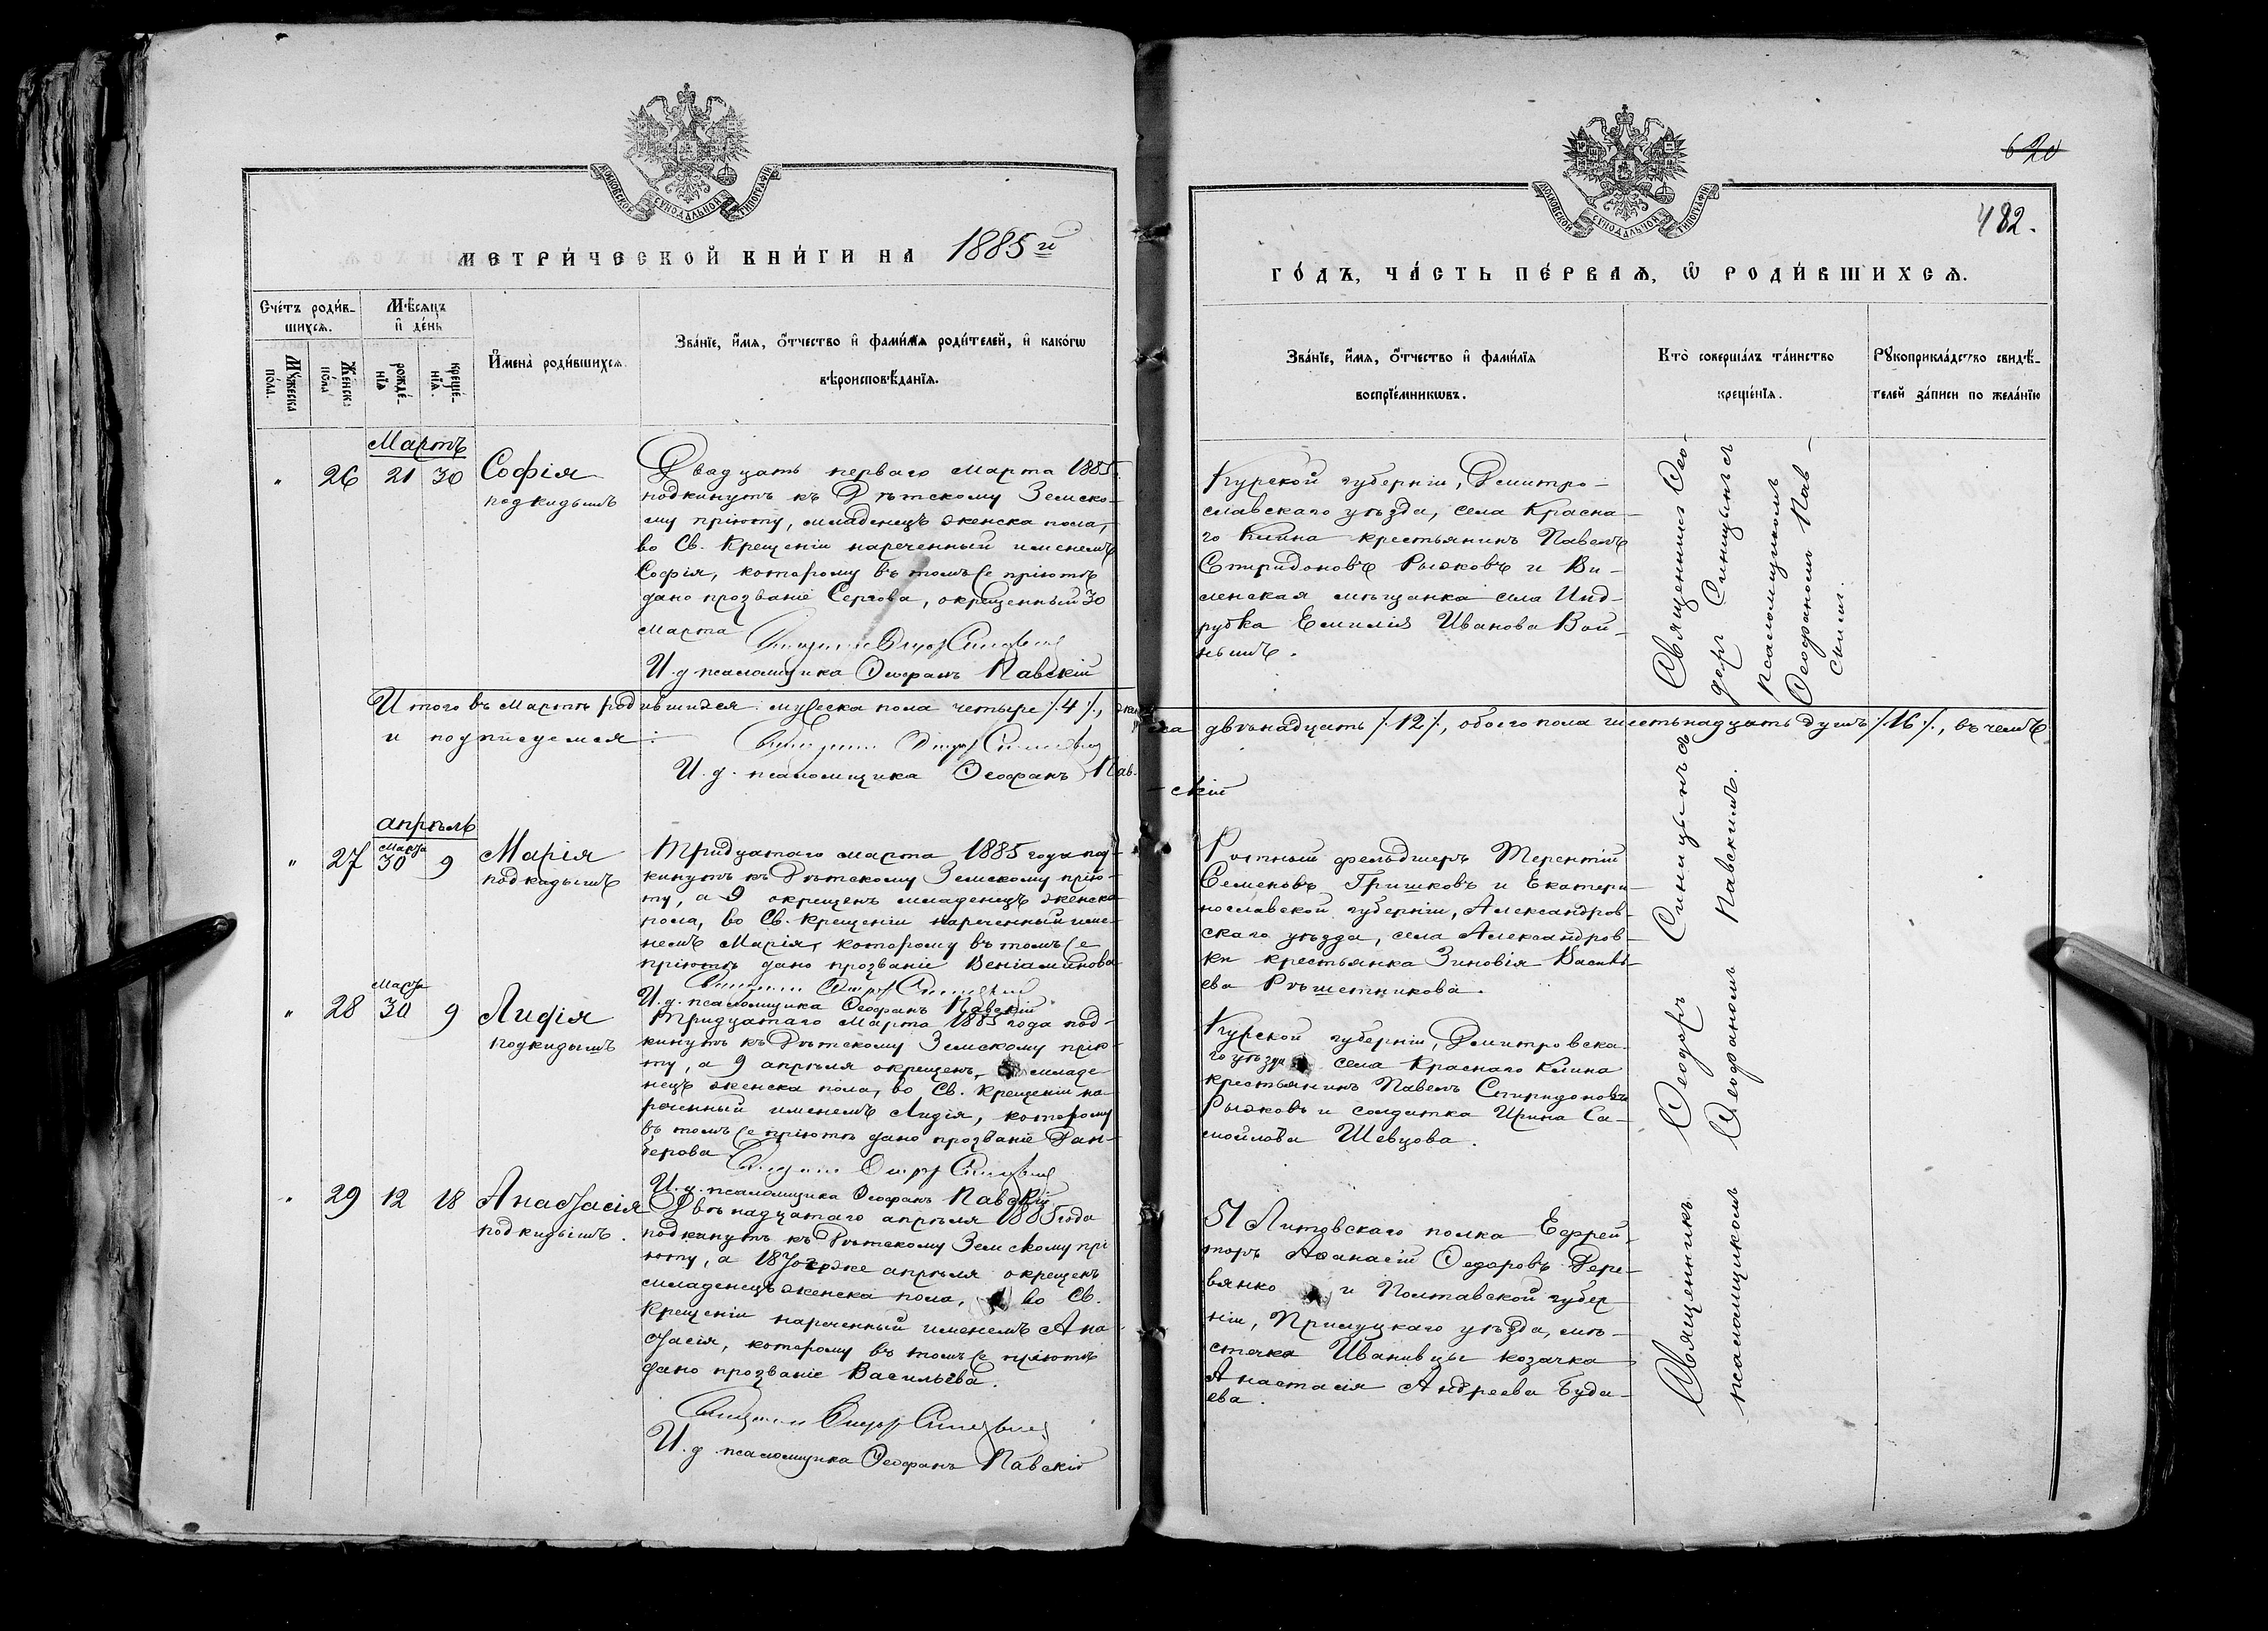 МОСКОВСКОЙ СѴНОДАЛЬНОЙ ТИПОГРАФІИ
МЕТРИ́ЧЕСКОЙ КНИ́ГИ НА 1885 й
Сче́тъ роди́в-
шихсѧ.
Мѣ́сѧцъ
и҆ де́нь
Мꙋ́жеска
по́ла.
Же́нска
по́ла
рожде́-
нїѧ
креще́-
нїѧ.
И҆мена̀ роди́вшихсѧ.
Зва́нїе, и҆́мѧ, ѻ҆́тчество и҆ фами́лїѧ роди́телей, и҆ како́гѡ
вѣроисповѣ́данїѧ.
Мартъ
" 26 21 30 Софія
подкидышъ
Двадцать перваго Марта 1885
подкинутъ къ Дѣтскому Земско-
му пріюту, младенецъ женска пола,
во Св. Крещеніи нареченный именемъ
Софія, которому въ томъ же пріютѣ
дано прозваніе Сергова, окрещенный 30
Марта
И. д псаломщика Ѳеофанъ Павскій
Итого въ Мартѣ родившихся: мужеска пола четыре /4/,
и подписуемся:
И. д. псаломщика Ѳеофанъ Пав-
апрѣль
" 27 Марта 30 9 Марія
подкидышъ
Тридцатаго марта 1885 года под-
кинутъ къ Дѣтскому Земскому прію-
ту, а 9 окрещенъ младенецъ женска
пола, во Св. Крещеніи нареченный име-
немъ Марія, которому въ томъ же
пріютѣ дано прозваніе Веніаминова
И. д. псаломщика Ѳеофанъ Павскій
" 28 Марта 30 9 Лидія
подкидышъ
Тридцатаго Марта 1885 года под-
кинутъ къ Дѣтскому Земскому прію-
ту, а 9 апрѣля окрещенъ младе-
нецъ женска пола, во Св. Крещеніи на-
реченный именемъ Лидія, которому
въ томъ же пріютѣ дано прозваніе Дан-
герова
И. д. псаломщика Ѳеофанъ Павскій
" 29 12 18 Анастасія
подкидышъ.
Двѣнадцатаго апрѣля 1885 года
подкинутъ къ Дѣтскому Земскому прі
юту, а 18 того же апрѣля окрещенъ
младенецъ женска пола, во Св.
Крещеніи нареченный именемъ Ана
стасія, которому въ томъ же пріютѣ
дано прозваніе Васильева.
И. д псаломщика Ѳеофанъ Павскій
620
482.
МОСКОВСКОЙ СѴНОДАЛЬНОЙ ТИПОГРАФІИ
ГО́ДЪ, ЧА́СТЬ ПЕ́РВАѦ, Ѡ҆ РОДИ́ВШИХСѦ.
Зва́нїе, и҆́мѧ, ѻ҆́тчество и҆ фами́лїѧ
воспрїе́мникѡвъ.
Кто̀ соверша́лъ та́инство
креще́нїѧ.
Рꙋкоприкла́дство свидѣ́-
телей за́писи по жела́нїю
Курской губерніи, Дмитро-
славскаго уѣзда, села Красна-
го Клина крестьянинъ Павелъ
Спиридоновъ Рыжковъ и Ви-
ленская мѣщанка села Инд-
рубка Емилія Иванова Вой-
нышъ.
Священникъ Ѳео-
доръ Синицынъ съ
псаломщикомъ
Ѳеофаномъ Пав-
скимъ.
двѣнадцать /12/, обоего пола шестьнадцать душъ /16/, въ чемъ
-скій
Ротный фельдшеръ Терентій
Семеновъ Гришковъ и Екатери-
нославской губерніи, Александров-
скаго уѣзда, села Александров-
ки крестьянка Зиновія Василь-
ева Рѣшетникова.
Курской губерніи, Дмитровска-
го уѣзда села Краснаго Клина
крестьянинъ Павелъ Спиридоновъ
Рыжковъ и солдатка Ирина Са-
мойлова Шевцова.
51 Литовскаго полка Ефрей-
торъ Аѳанасій Ѳедоровъ Дере-
вянко и Полтавской губер
ніи, Прилуцкаго уѣзда, мѣ-
стечка Иванивцы козачка
Анастасія Андреева Буда-
ева.
Священникъ Ѳеодоръ Синицынъ съ
псаломщикомъ Ѳеофаномъ Павскимъ.